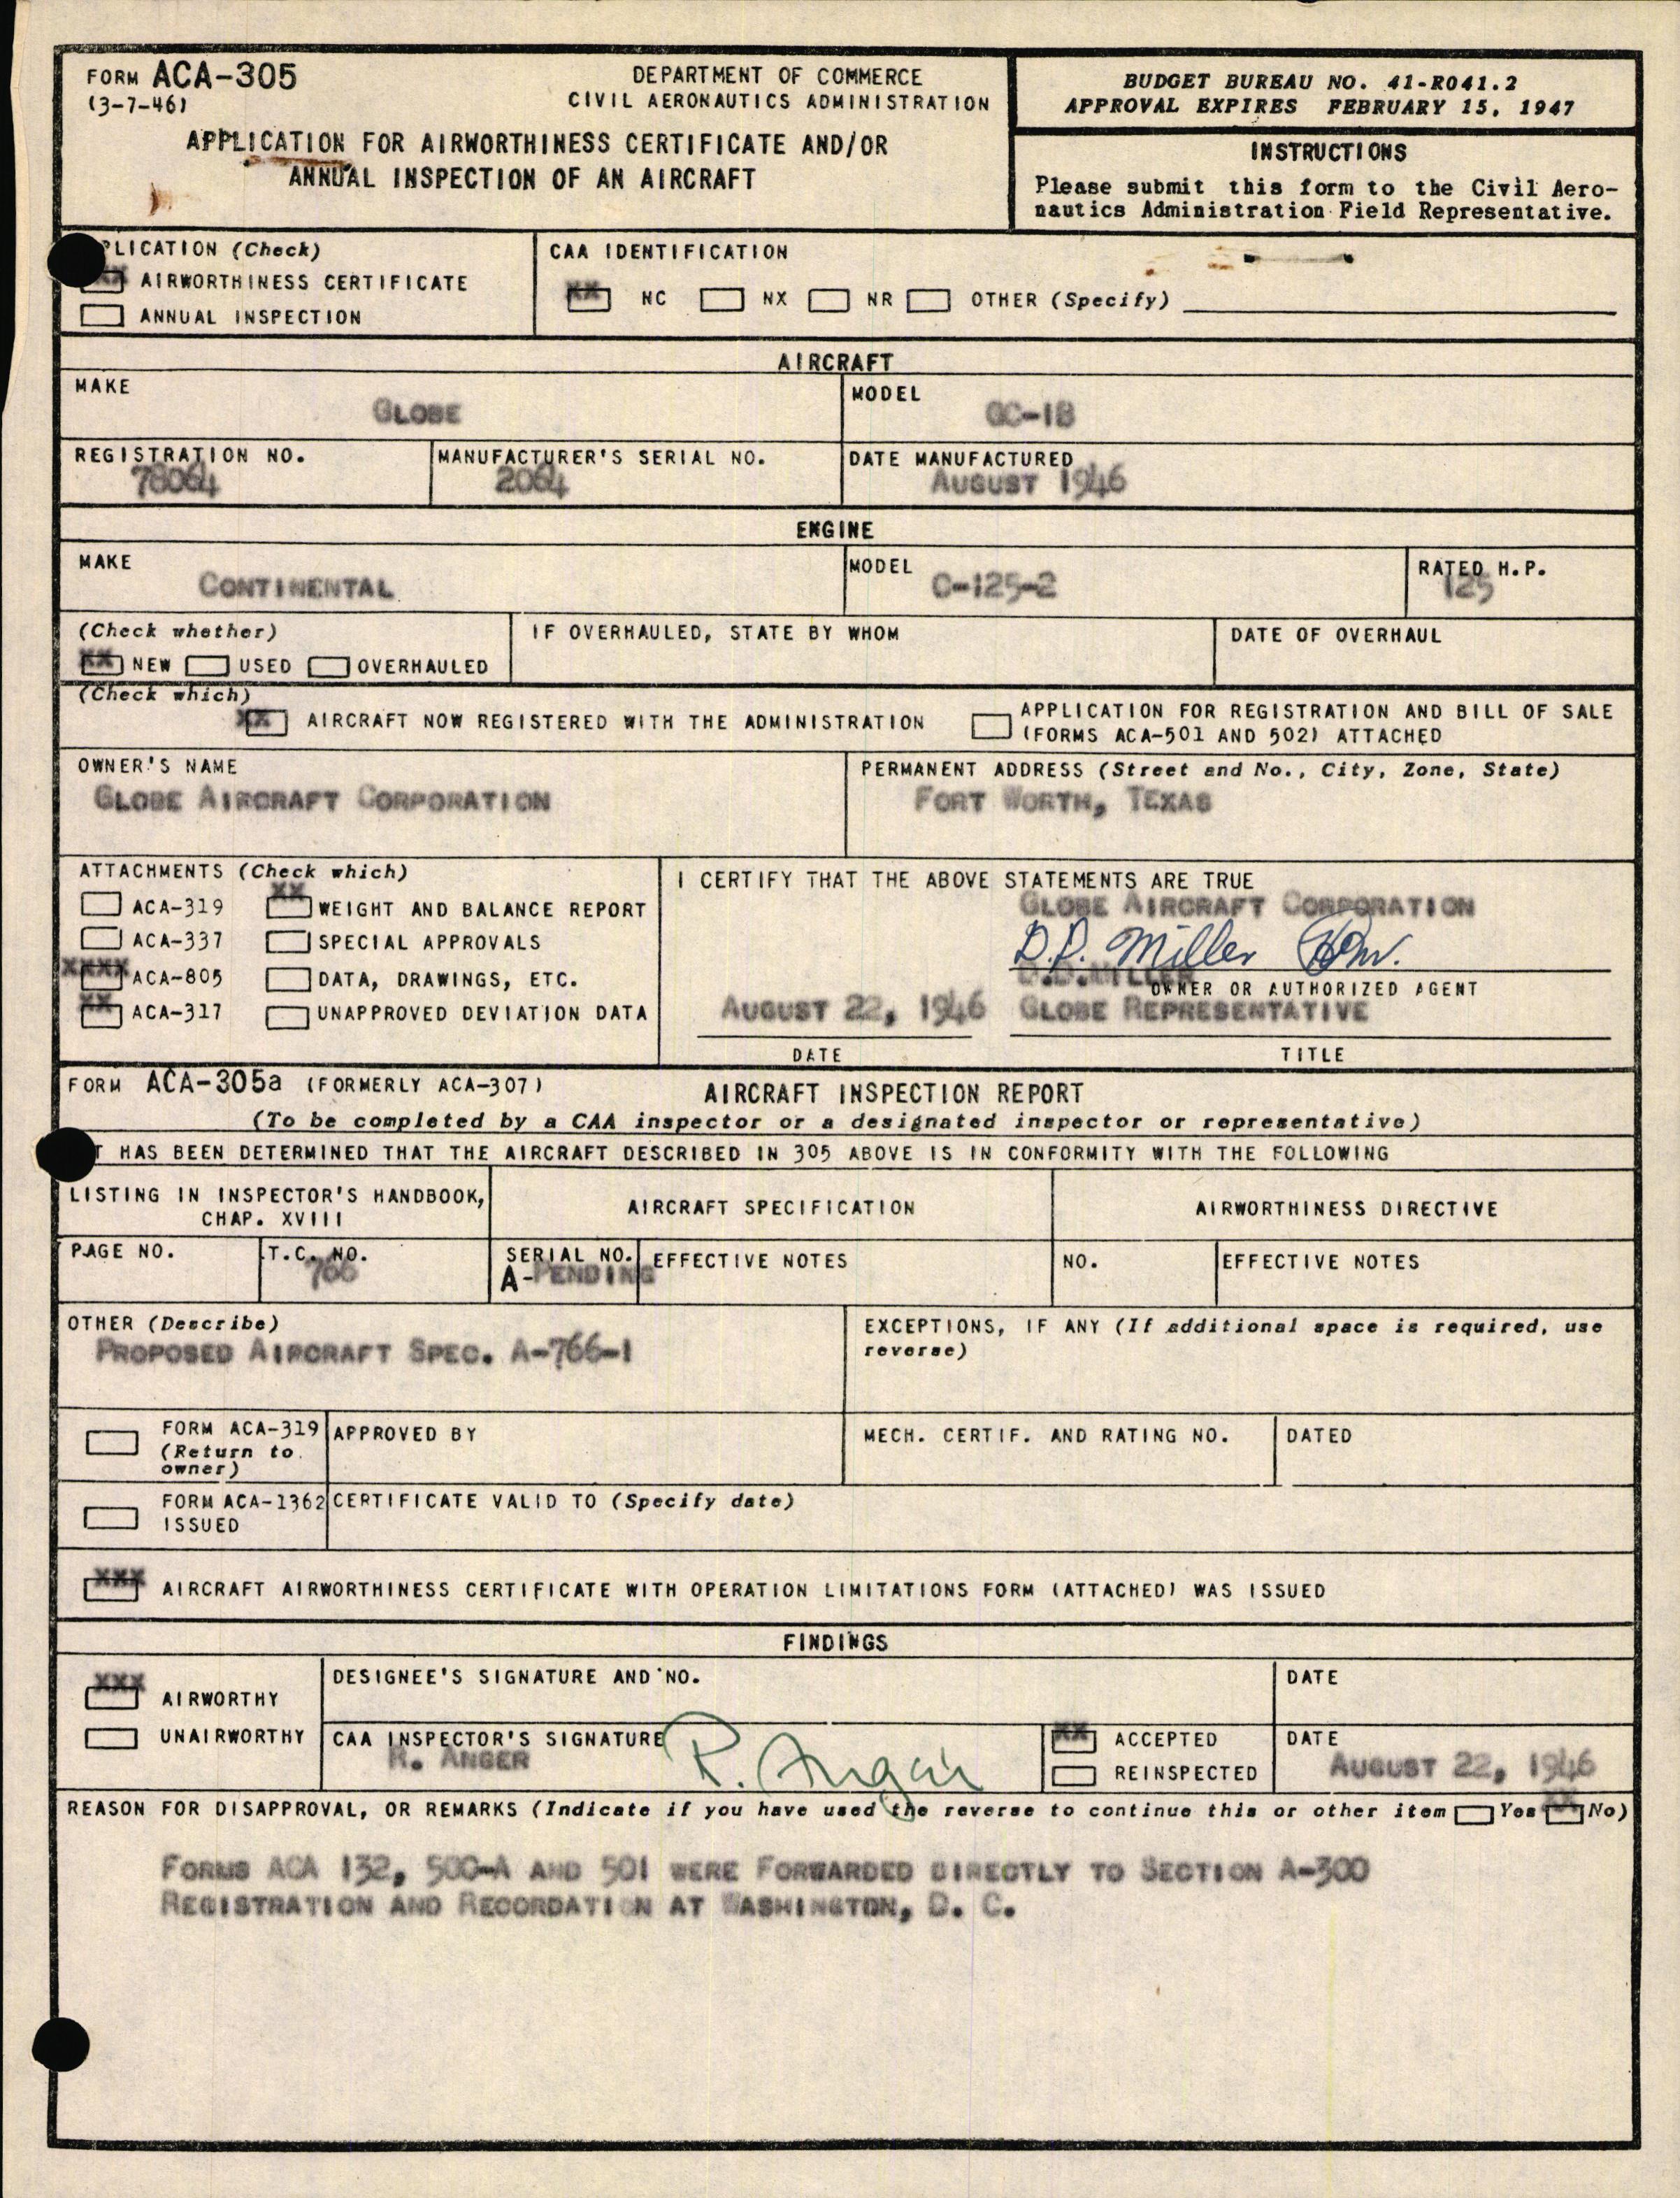 FORM ACA-305
(3-7-46)
DEPARTMENT OF COMMERCE
CIVIL AERONAUTICS ADMINISTRATION
APPLICATION FOR AIRWORTHINESS CERTIFICATE AND/OR
ANNUAL INSPECTION OF AN AIRCRAFT
BUDGET BUREAU NO. 41-R041.2
APPROVAL EXPIRES FEBRUARY 15, 1947
INSTRUCTIONS
Please submit this form to the Civil Aero-
nautics Administration Field Representative.
PLICATION (Check)
XX AIRWORTHINESS CERTIFICATE
ANNUAL INSPECTION
CAA IDENTIFICATION
XX NC NX NR OTHER (Specify)
AIRCRAFT
MAKE
GLOBE
MODEL
GC-1B
REGISTRATION NO.
78064
MANUFACTURER'S SERIAL NO.
2064
DATE MANUFACTURED
AUGUST 1946
ENGINE
MAKE
CONTINENTAL
MODEL
C-125-2
RATED H.P.
125
(Check whether)
XX NEW USED OVERHAULED
IF OVERHAULED, STATE BY WHOM
DATE OF OVERHAUL
(Check which)
XX AIRCRAFT NOW REGISTERED WITH THE ADMINISTRATION
APPLICATION FOR REGISTRATION AND BILL OF SALE
(FORMS ACA-501 AND 502) ATTACHED
OWNER'S NAME
GLOBE AIRCRAFT CORPORATION
PERMANENT ADDRESS (Street and No., City, Zone, State)
FORT WORTH, TEXAS
ATTACHMENTS (Check which)
ACA-319 XX WEIGHT AND BALANCE REPORT
ACA-337 SPECIAL APPROVALS
XXXX ACA-805 DATA, DRAWINGS, ETC.
XX ACA-317 UNAPPROVED DEVIATION DATA
I CERTIFY THAT THE ABOVE STATEMENTS ARE TRUE
GLOBE AIRCRAFT CORPORATION
D.D. Miller
D.D. MILLER
OWNER OR AUTHORIZED AGENT
AUGUST 22, 1946 GLOBE REPRESENTATIVE
DATE TITLE
FORM ACA-305a (FORMERLY ACA-307)
AIRCRAFT INSPECTION REPORT
(To be completed by a CAA inspector or a designated inspector or representative)
T HAS BEEN DETERMINED THAT THE AIRCRAFT DESCRIBED IN 305 ABOVE IS IN CONFORMITY WITH THE FOLLOWING
LISTING IN INSPECTOR'S HANDBOOK,
CHAP. XVIII
AIRCRAFT SPECIFICATION
AIRWORTHINESS DIRECTIVE
PAGE NO.
T.C. NO.
766
SERIAL NO.
A-PENDING
EFFECTIVE NOTES
NO.
EFFECTIVE NOTES
OTHER (Describe)
PROPOSED AIRCRAFT SPEC. A-766-1
EXCEPTIONS, IF ANY (If additional space is required, use
reverse)
FORM ACA-319
(Return to
owner)
APPROVED BY
MECH. CERTIF. AND RATING NO.
DATED
FORM ACA-1362
ISSUED
CERTIFICATE VALID TO (Specify date)
XXX AIRCRAFT AIRWORTHINESS CERTIFICATE WITH OPERATION LIMITATIONS FORM (ATTACHED) WAS ISSUED
FINDINGS
XXX AIRWORTHY
UNAIRWORTHY
DESIGNEE'S SIGNATURE AND NO.
DATE
CAA INSPECTOR'S SIGNATURE
R. ANGER
R. Anger
XX ACCEPTED
REINSPECTED
DATE
AUGUST 22, 1946
REASON FOR DISAPPROVAL, OR REMARKS (Indicate if you have used the reverse to continue this or other item Yes XX No)
FORMS ACA 132, 500-A AND 501 WERE FORWARDED DIRECTLY TO SECTION A-300
REGISTRATION AND RECORDATION AT WASHINGTON, D. C.